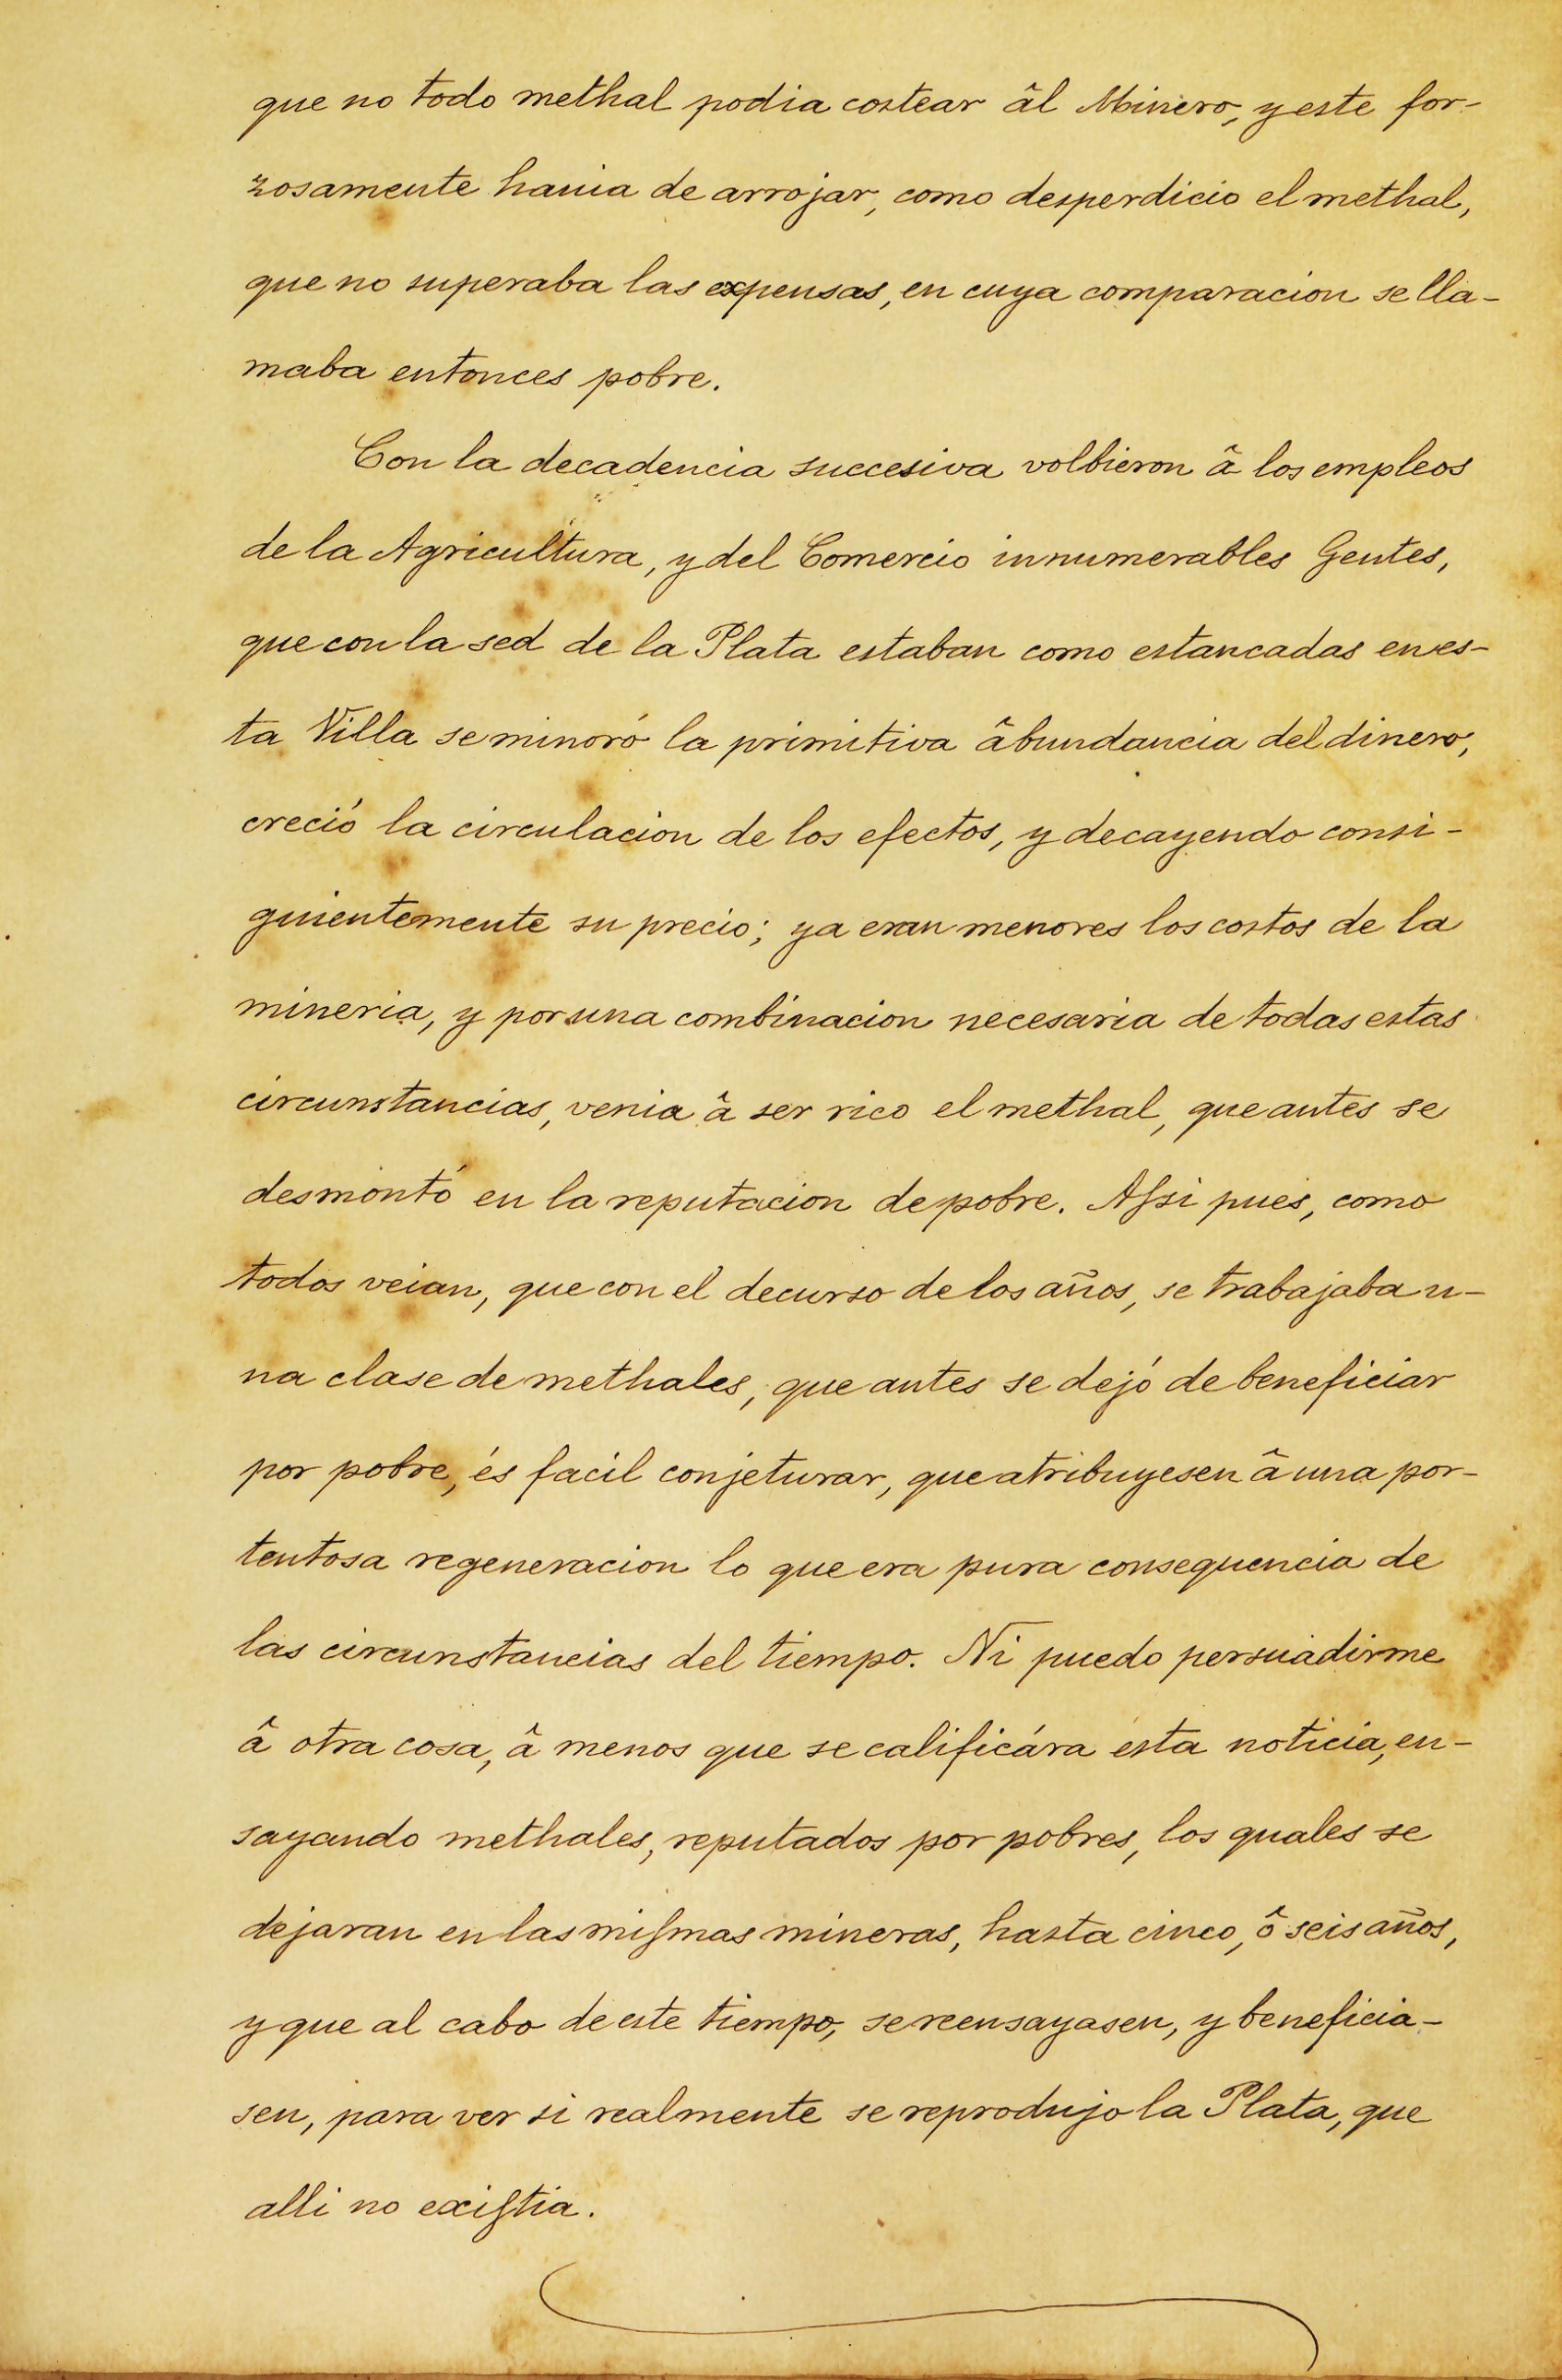 que no todo methal podia costear âl Minero, y este for-
zosamente hauia de arrojar, como desperdicio el methal,
que no superaba las expensas, en cuya comparacion se lla-
maba entonces pobre.
Con la decadencia succesiva volbieron â los empleos
de la Agricultura, y del Comercio innumerables Gentes,
que con la sed de la Plata estaban como estancadas en es-
ta Villa se minoró la primitiva âbundancia del dinero,
creció la circulacion de los efectos, y decayendo consi-
guientemente su precio; ya eran menores los costos de la
mineria, y por una combinacion necesaria de todas estas
circunstancias, venia â ser rico el methal, que antes se
desmontó en la reputacion de pobre. Aſsi pues, como
todos veian, que con el decurso de los años, se trabajaba u-
na clase de methales, que antes se dejó de beneficiar
por pobre, és facil conjeturar, que atribuyesen â una por-
tentosa regeneracion lo que era pura consequencia de
las circunstancias del tiempo. Ni puedo persuadirme
â otra cosa, â menos que se calificára esta noticia, en-
sayando methales, reputados por pobres, los quales se
dejaran en las miſmas mineras, hasta cinco, ô seis años,
y que al cabo de este tiempo, se reensayasen, y beneficia-
sen, para ver si realmente se reprodujo la Plata, que
alli no exiſtia.